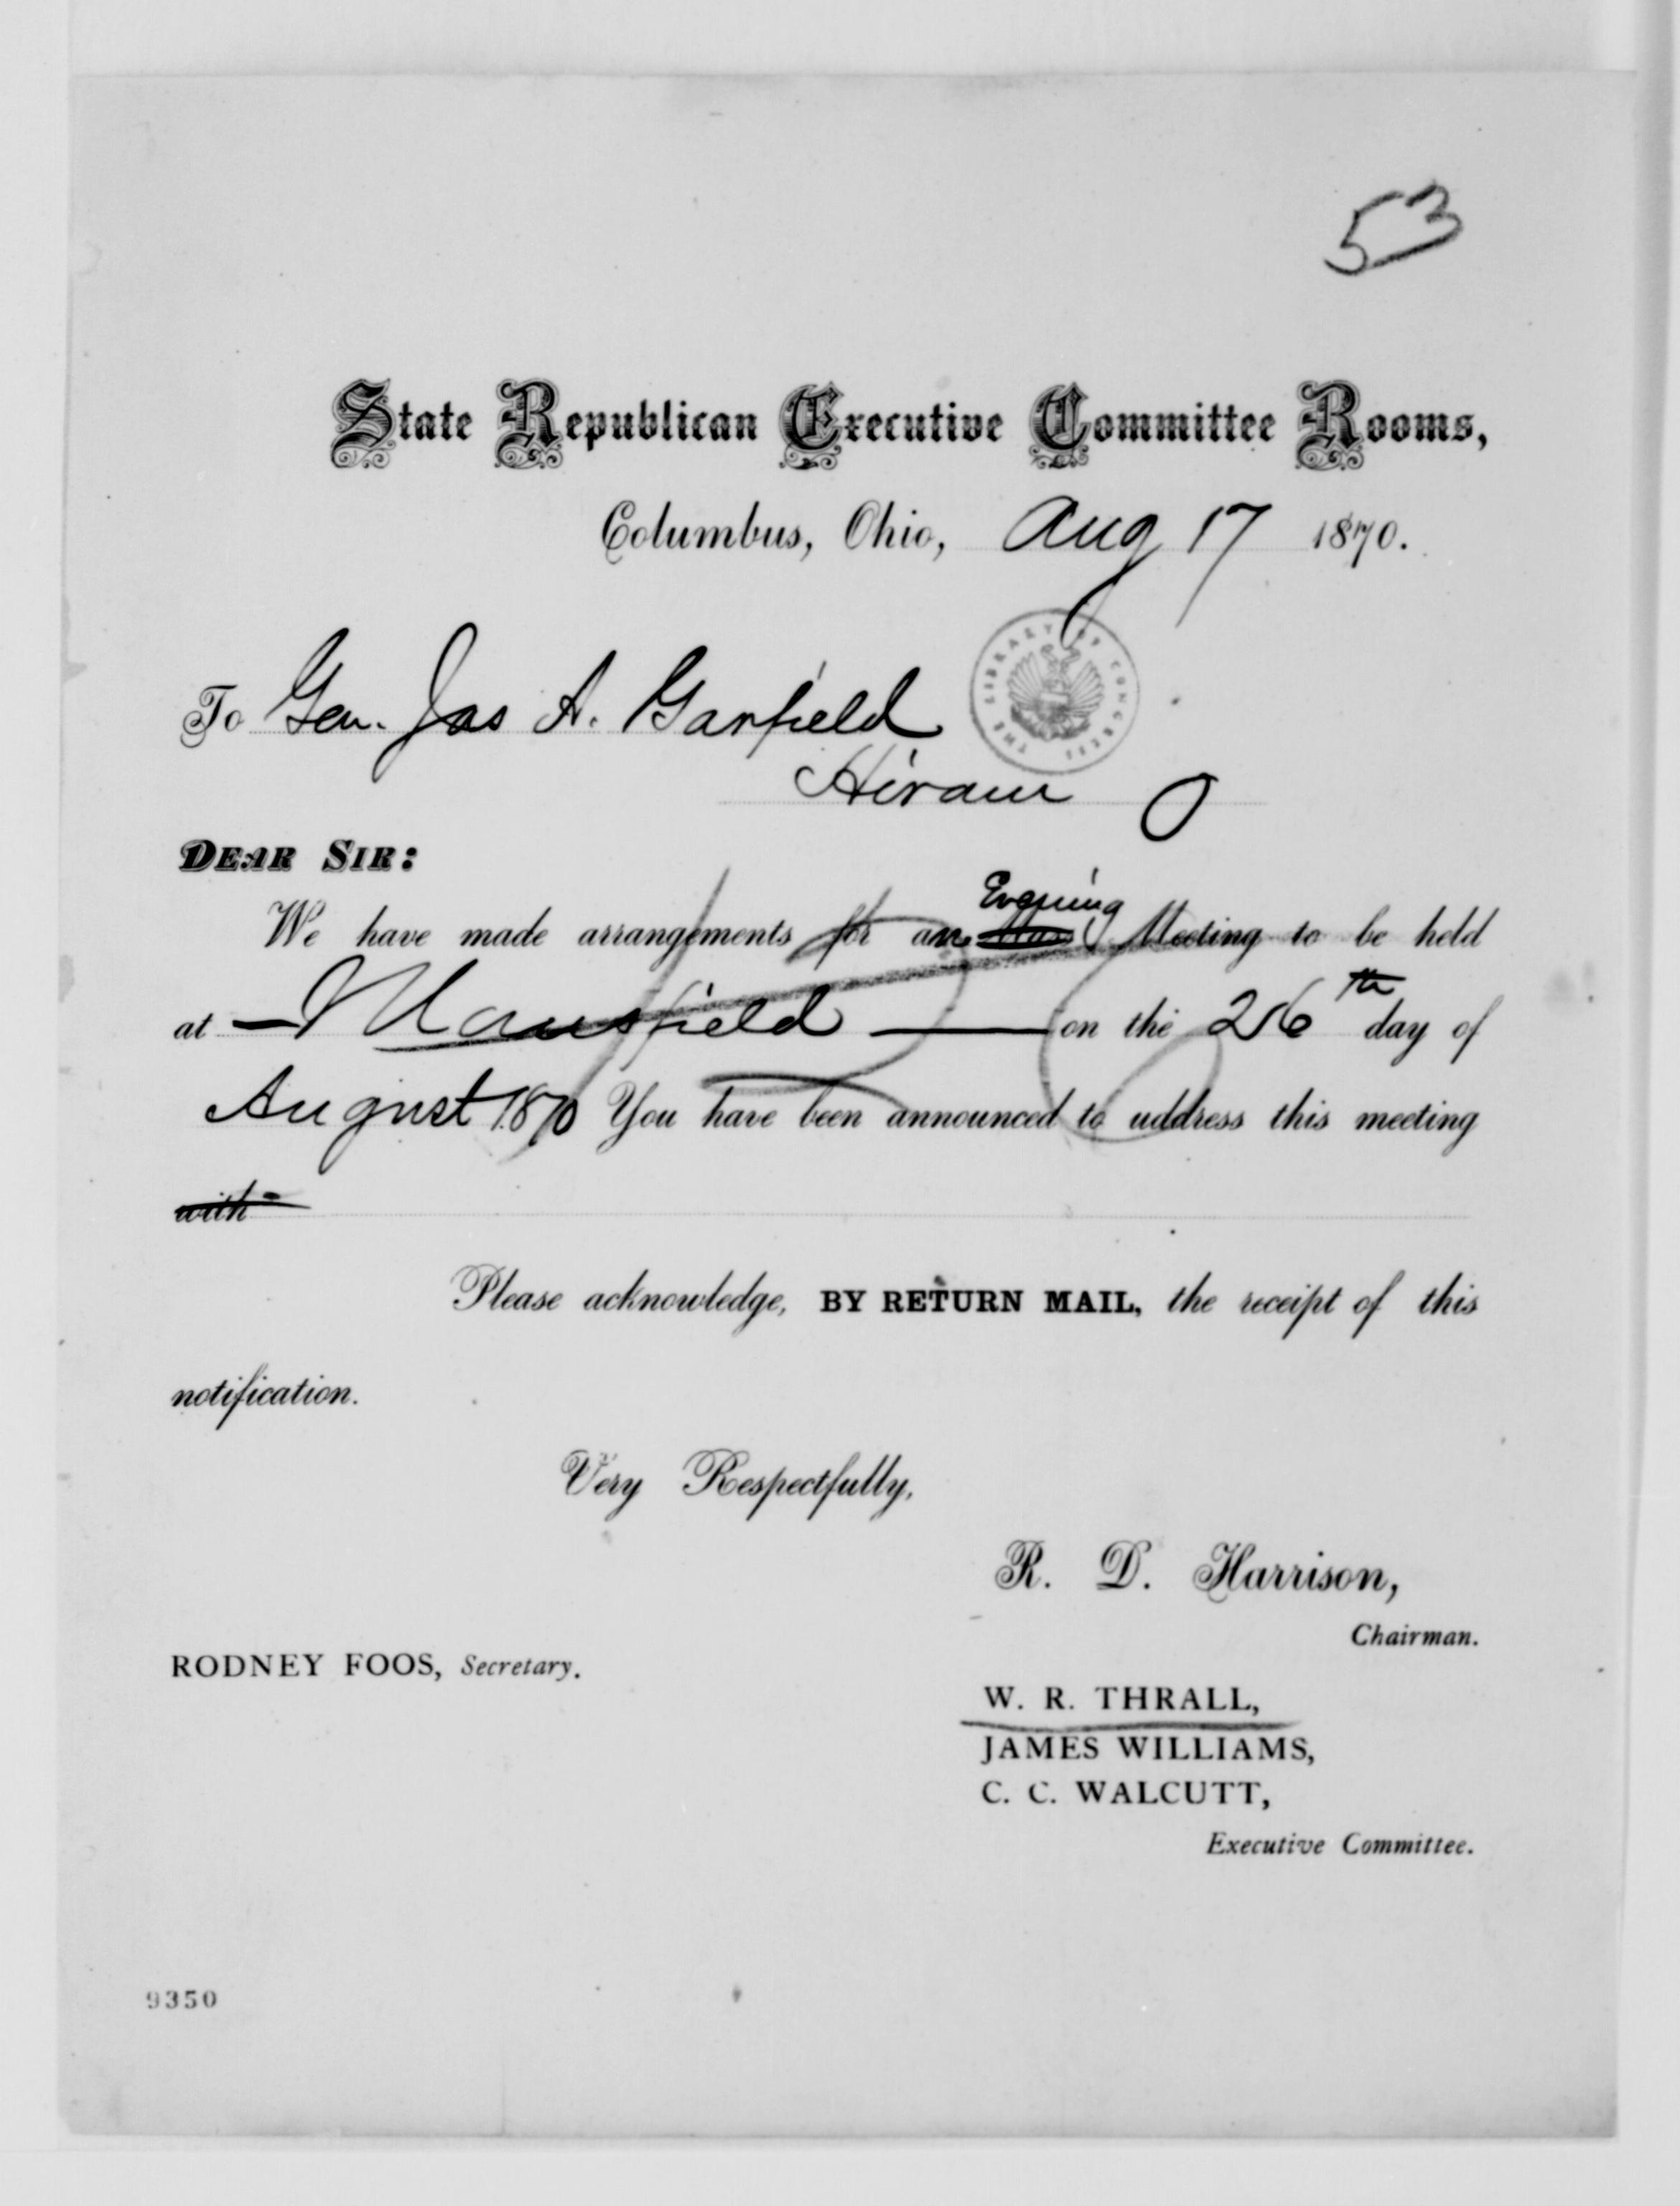 53
State Republican Executive Committee Rooms,
Columbus, Ohio, Aug 17 1870.
THE LIBRARY OF CONGRESS
To Gen. Jas A. Garfield
Hiram O
DEAR SIR:
Evening
We have made arrangements for an Mass Meeting to be held
at — Mansfield — on the 26th day of
August 1870 You have been announced to address this meeting
with
Please acknowledge, BY RETURN MAIL, the receipt of this
notification.
Very Respectfully,
R. D. Harrison,
Chairman.
RODNEY FOOS, Secretary.
W. R. THRALL,
JAMES WILLIAMS,
C. C. WALCUTT,
Executive Committee.
9350